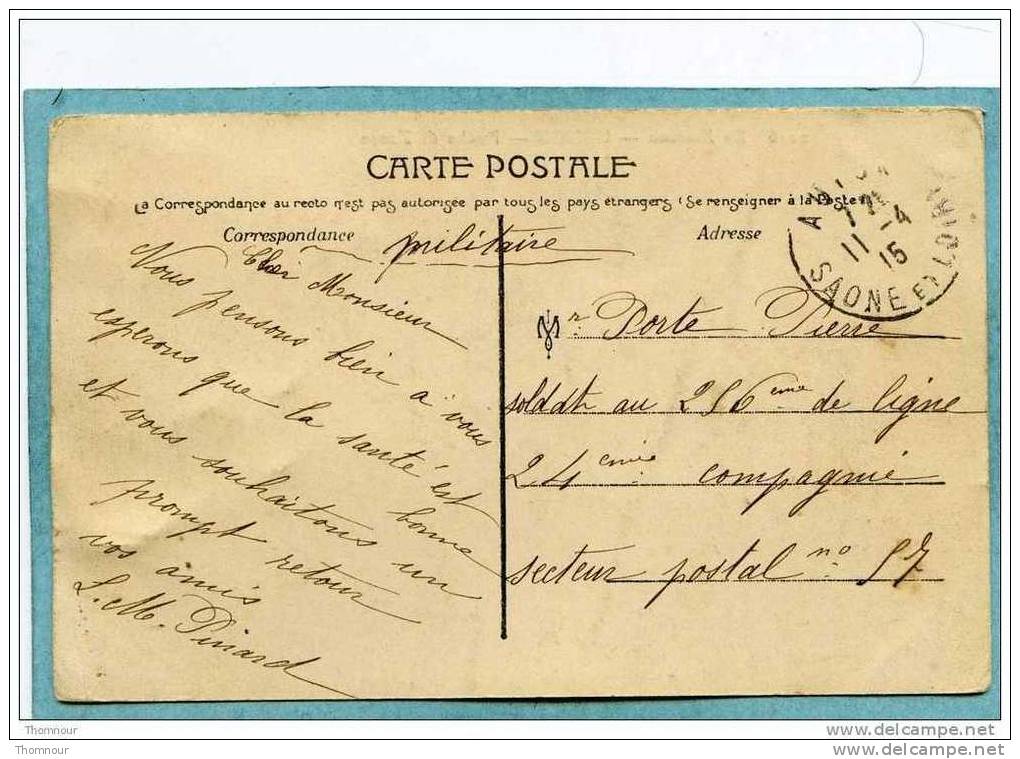 CARTE POSTALE
La Correspondance au recto n'est pas autorisée par tous les pays étrangers (Se renseigner à la Poste)
Correspondance militaire
Adresse
SAONE ET LOIRE
11 -4
15
Cher Monsieur
Nous pensons bien à vous
esperons que la santé est bonne
et vous souhaitons un
prompt retour
vos amis
L. M. Pinard
Mr Porte Pierre
soldat au 256eme de ligne
24eme compagnie
secteur postal no 57
Thomnour
Thomnour
delcampe.net
delcampe.net